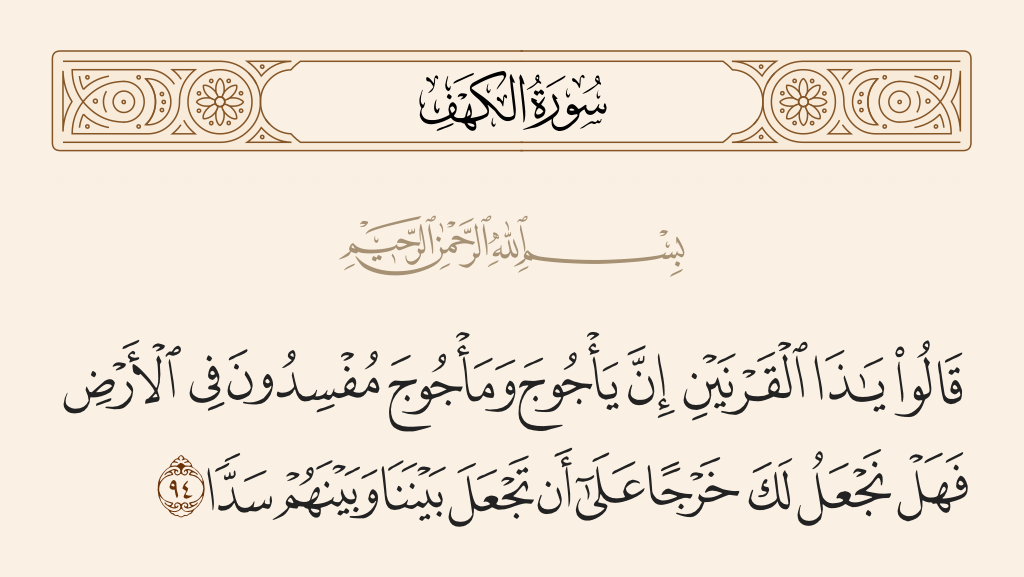 سُورَةُ الكَهْفِ
بِسْمِ ٱللَّهِ ٱلرَّحْمَٰنِ ٱلرَّحِيمِ
قَالُوا۟ يَـٰذَا ٱلْقَرْنَيْنِ إِنَّ يَأْجُوجَ وَمَأْجُوجَ مُفْسِدُونَ فِى ٱلْأَرْضِ
فَهَلْ نَجْعَلُ لَكَ خَرْجًا عَلَىٰٓ أَن تَجْعَلَ بَيْنَنَا وَبَيْنَهُمْ سَدًّا ٩٤